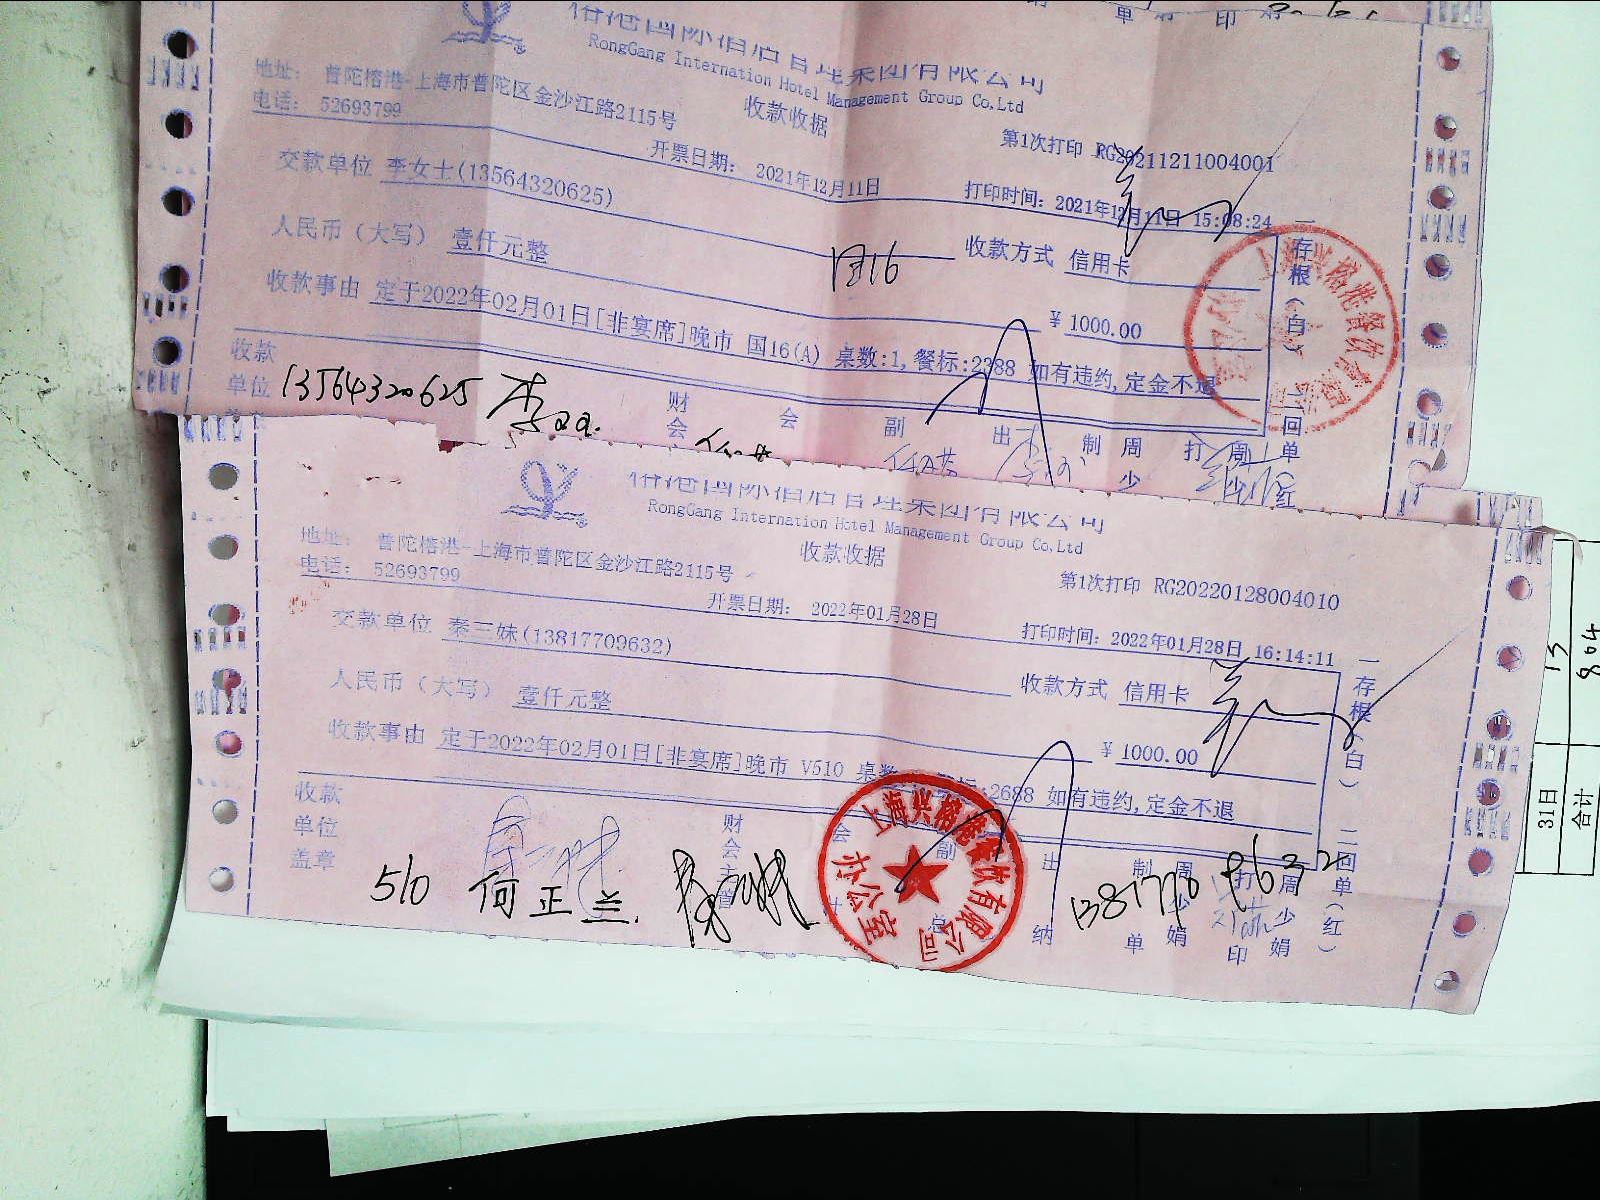 榕港国际酒店管理集团有限公司
RongGang Internation Hotel Management Group Co.Ltd
地址: 普陀榕港-上海市普陀区金沙江路2115号
电话: 52693799
收款收据
第1次打印 RG20211211004001
开票日期: 2021年12月11日
打印时间: 2021年12月11日 15:08:24
交款单位 李女士(13564320625)
收款方式 信用卡
人民币（大写） 壹仟元整
国16
￥ 1000.00
收款事由 定于2022年02月01日[非宴席]晚市 国16(A) 桌数:1,餐标:2388 如有违约,定金不退
一存根（白）二回单（红
收款
单位
13564320625
财会
会
副
出
制
周少
打
周少
上海兴榕港餐饮有限公司
榕港国际酒店管理集团有限公司
RongGang Internation Hotel Management Group Co.Ltd
地址: 普陀榕港-上海市普陀区金沙江路2115号
电话: 52693799
收款收据
第1次打印 RG20220128004010
开票日期: 2022年01月28日
打印时间: 2022年01月28日 16:14:11
交款单位 秦三妹(13817709632)
收款方式 信用卡
人民币（大写） 壹仟元整
￥ 1000.00
收款事由 定于2022年02月01日[非宴席]晚市 V510 桌数 :2688 如有违约,定金不退
一存根（白）二回单（红）
收款
单位
盖章
财会主管
会
副总
出纳
制单
周少娟
打印
周少娟
510 何正兰.
上海兴榕港餐饮有限公司
办公室
13
804
31日
合计